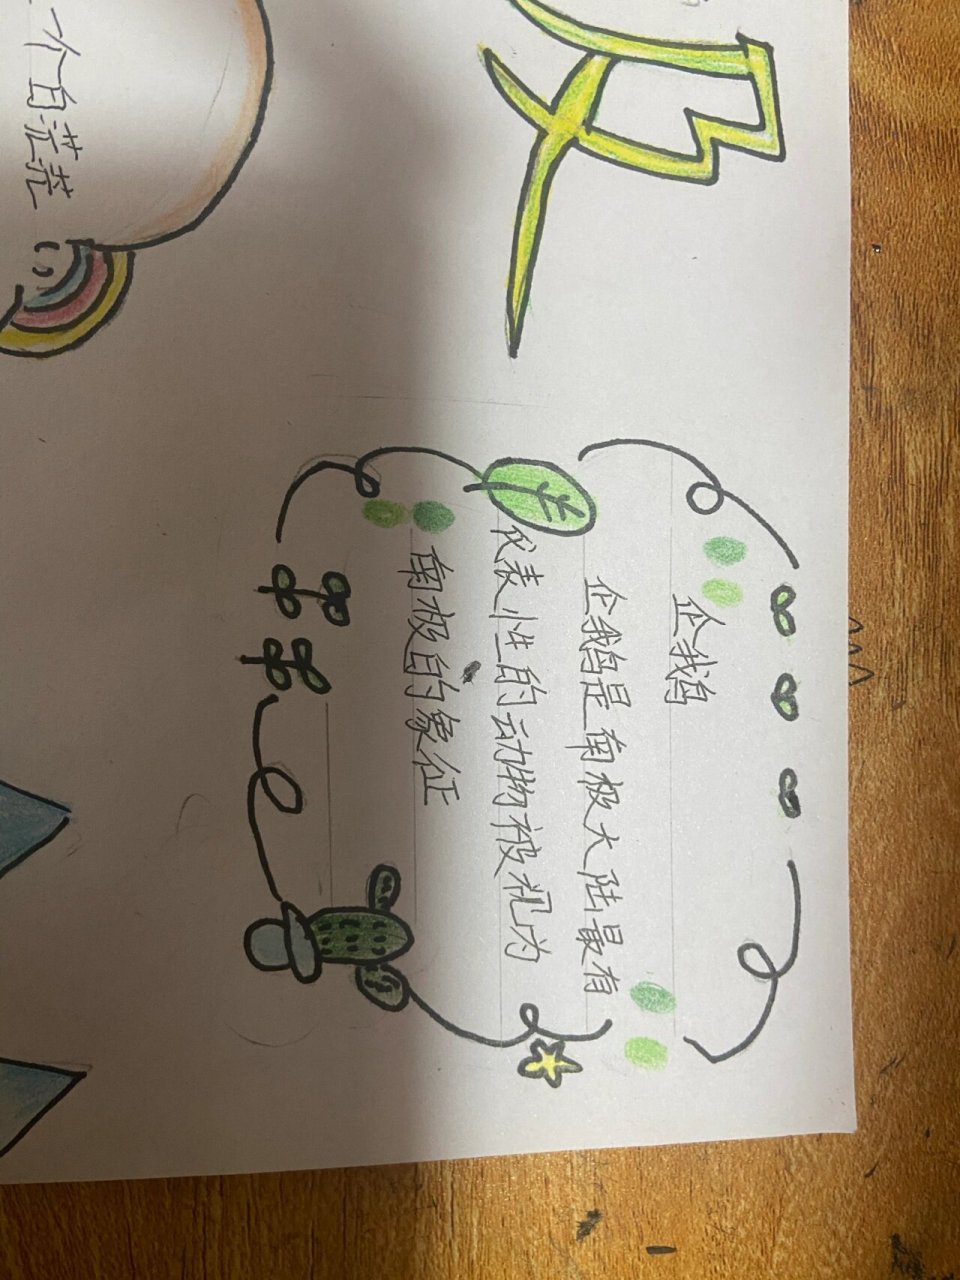 企鹅
企鹅是南极大陆最有
代表性的动物被视为
南极的象征
个白茫茫